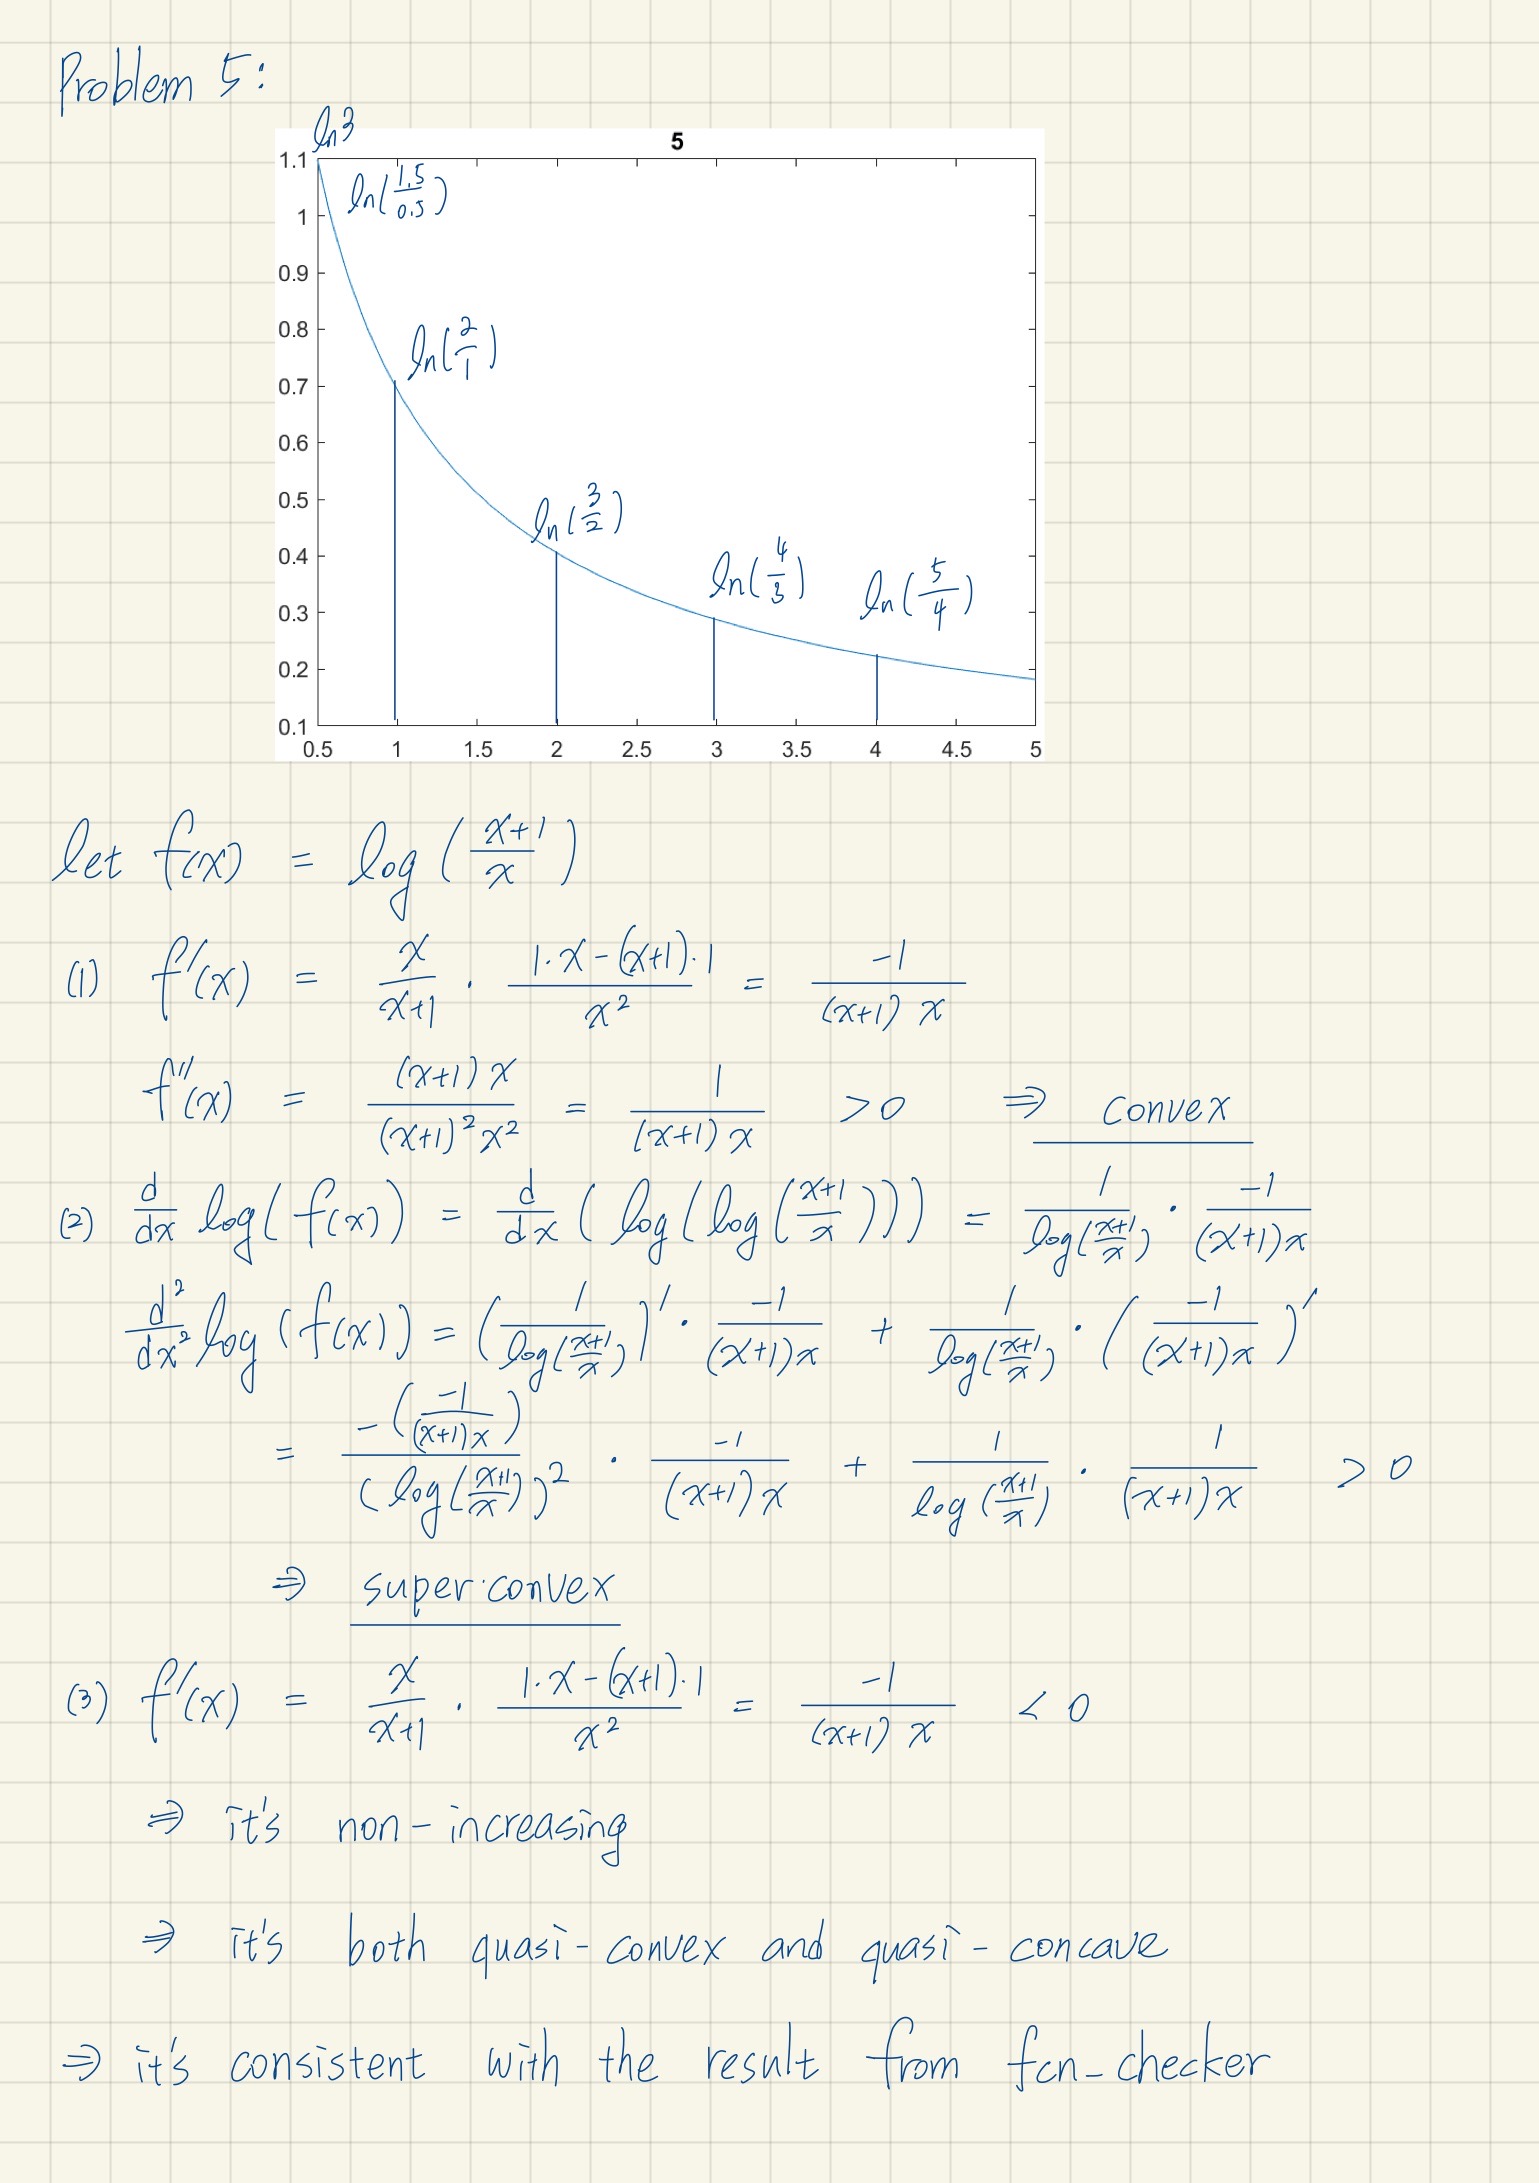 Problem 5:
ln3
5
1.1
ln(1.5/0.5)
1
0.9
0.8
ln(2/1)
0.7
0.6
0.5
ln(3/2)
0.4
ln(4/3)
ln(5/4)
0.3
0.2
0.1
0.5 1 1.5 2 2.5 3 3.5 4 4.5 5
let f(x) = log((x+1)/x)
(1) f'(x) = x/(x+1) · (1·x-(x+1)·1)/x² = -1/((x+1) x)
f''(x) = ((x+1)x)/((x+1)²x²) = 1/((x+1)x) >0 ⇒ convex
(2) d/dx log(f(x)) = d/dx (log(log((x+1)/x))) = 1/log((x+1)/x) · -1/((x+1)x)
d²/dx² log(f(x)) = (1/log((x+1)/x))' · -1/((x+1)x) + 1/log((x+1)/x) · (-1/((x+1)x))'
= -(-1/((x+1)x))/(log((x+1)/x))² · -1/((x+1)x) + 1/log((x+1)/x) · 1/((x+1)x) > 0
⇒ super·convex
(3) f'(x) = x/(x+1) · (1·x-(x+1)·1)/x² = -1/((x+1) x) < 0
⇒ it's non-increasing
⇒ it's both quasi-convex and quasi-concave
⇒ it's consistent with the result from fcn_checker